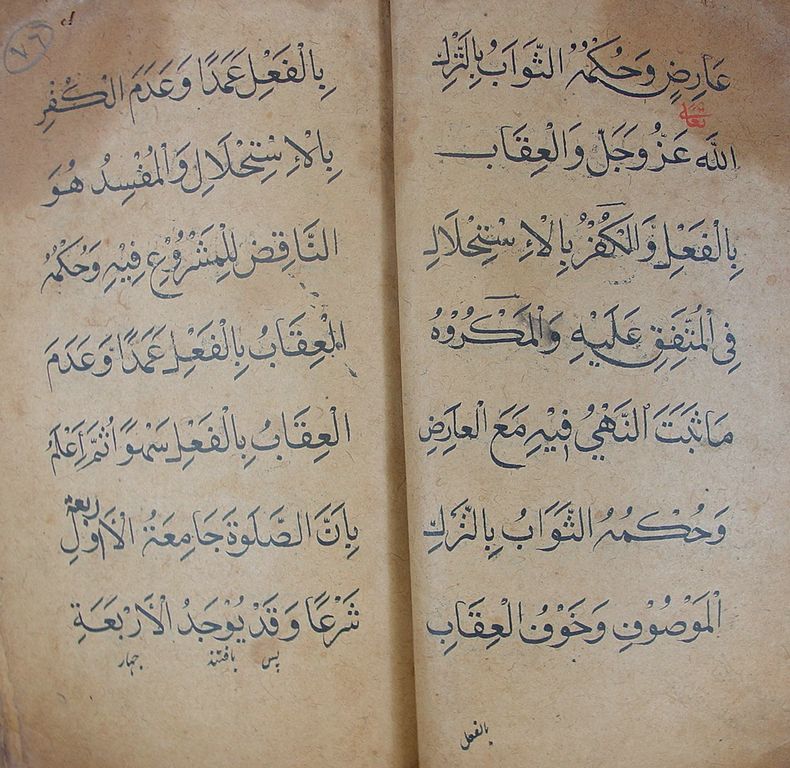 عَارِضٍ وَحُكْمُهُ الثَّوَابُ بِالتَّرْكِ
تعالى
اللَّهِ عَزَّ وَجَلَّ وَالْعِقَابِ
بِالْفَعْلِ وَالْكُفْرُ بِالْاِسْتِحْلَالِ
فِي الْمُتَّفَقِ عَلَيْهِ وَالْمَكْرُوْهُ
مَا ثَبَتَ النَّهْيُ فِيْهِ مَعَ الْعَارِضِ
وَحُكْمُهُ الثَّوَابُ بِالتَّرْكِ
الْمَوْصُوْفِ وَخَوْفُ الْعِقَابِ
بالفعل
٨٦
بِالْفَعْلِ عَمَدًا وَعَدَمَ الْكُفْرِ
بِالْاِسْتِحْلَالِ وَالْمُفْسِدُ هُوَ
النَّاقِضُ لِلْمَشْرُوْعِ فِيْهِ وَحُكْمُهُ
الْعِقَابُ بِالْفَعْلِ عَمَدًا وَعَدَمَ
الْعِقَابُ بِالْفَعْلِ سَهْوًا ثُمَّ اِعْلَمْ
بِاَنَّ الصَّلٰوةَ جَامِعَةُ الْاَرْبَعَةِ الْاُوَلِ
شَرْعًا وَقَدْ يُوْجَدُ الْاَرْبَعَةِ
پس يافتند چهار